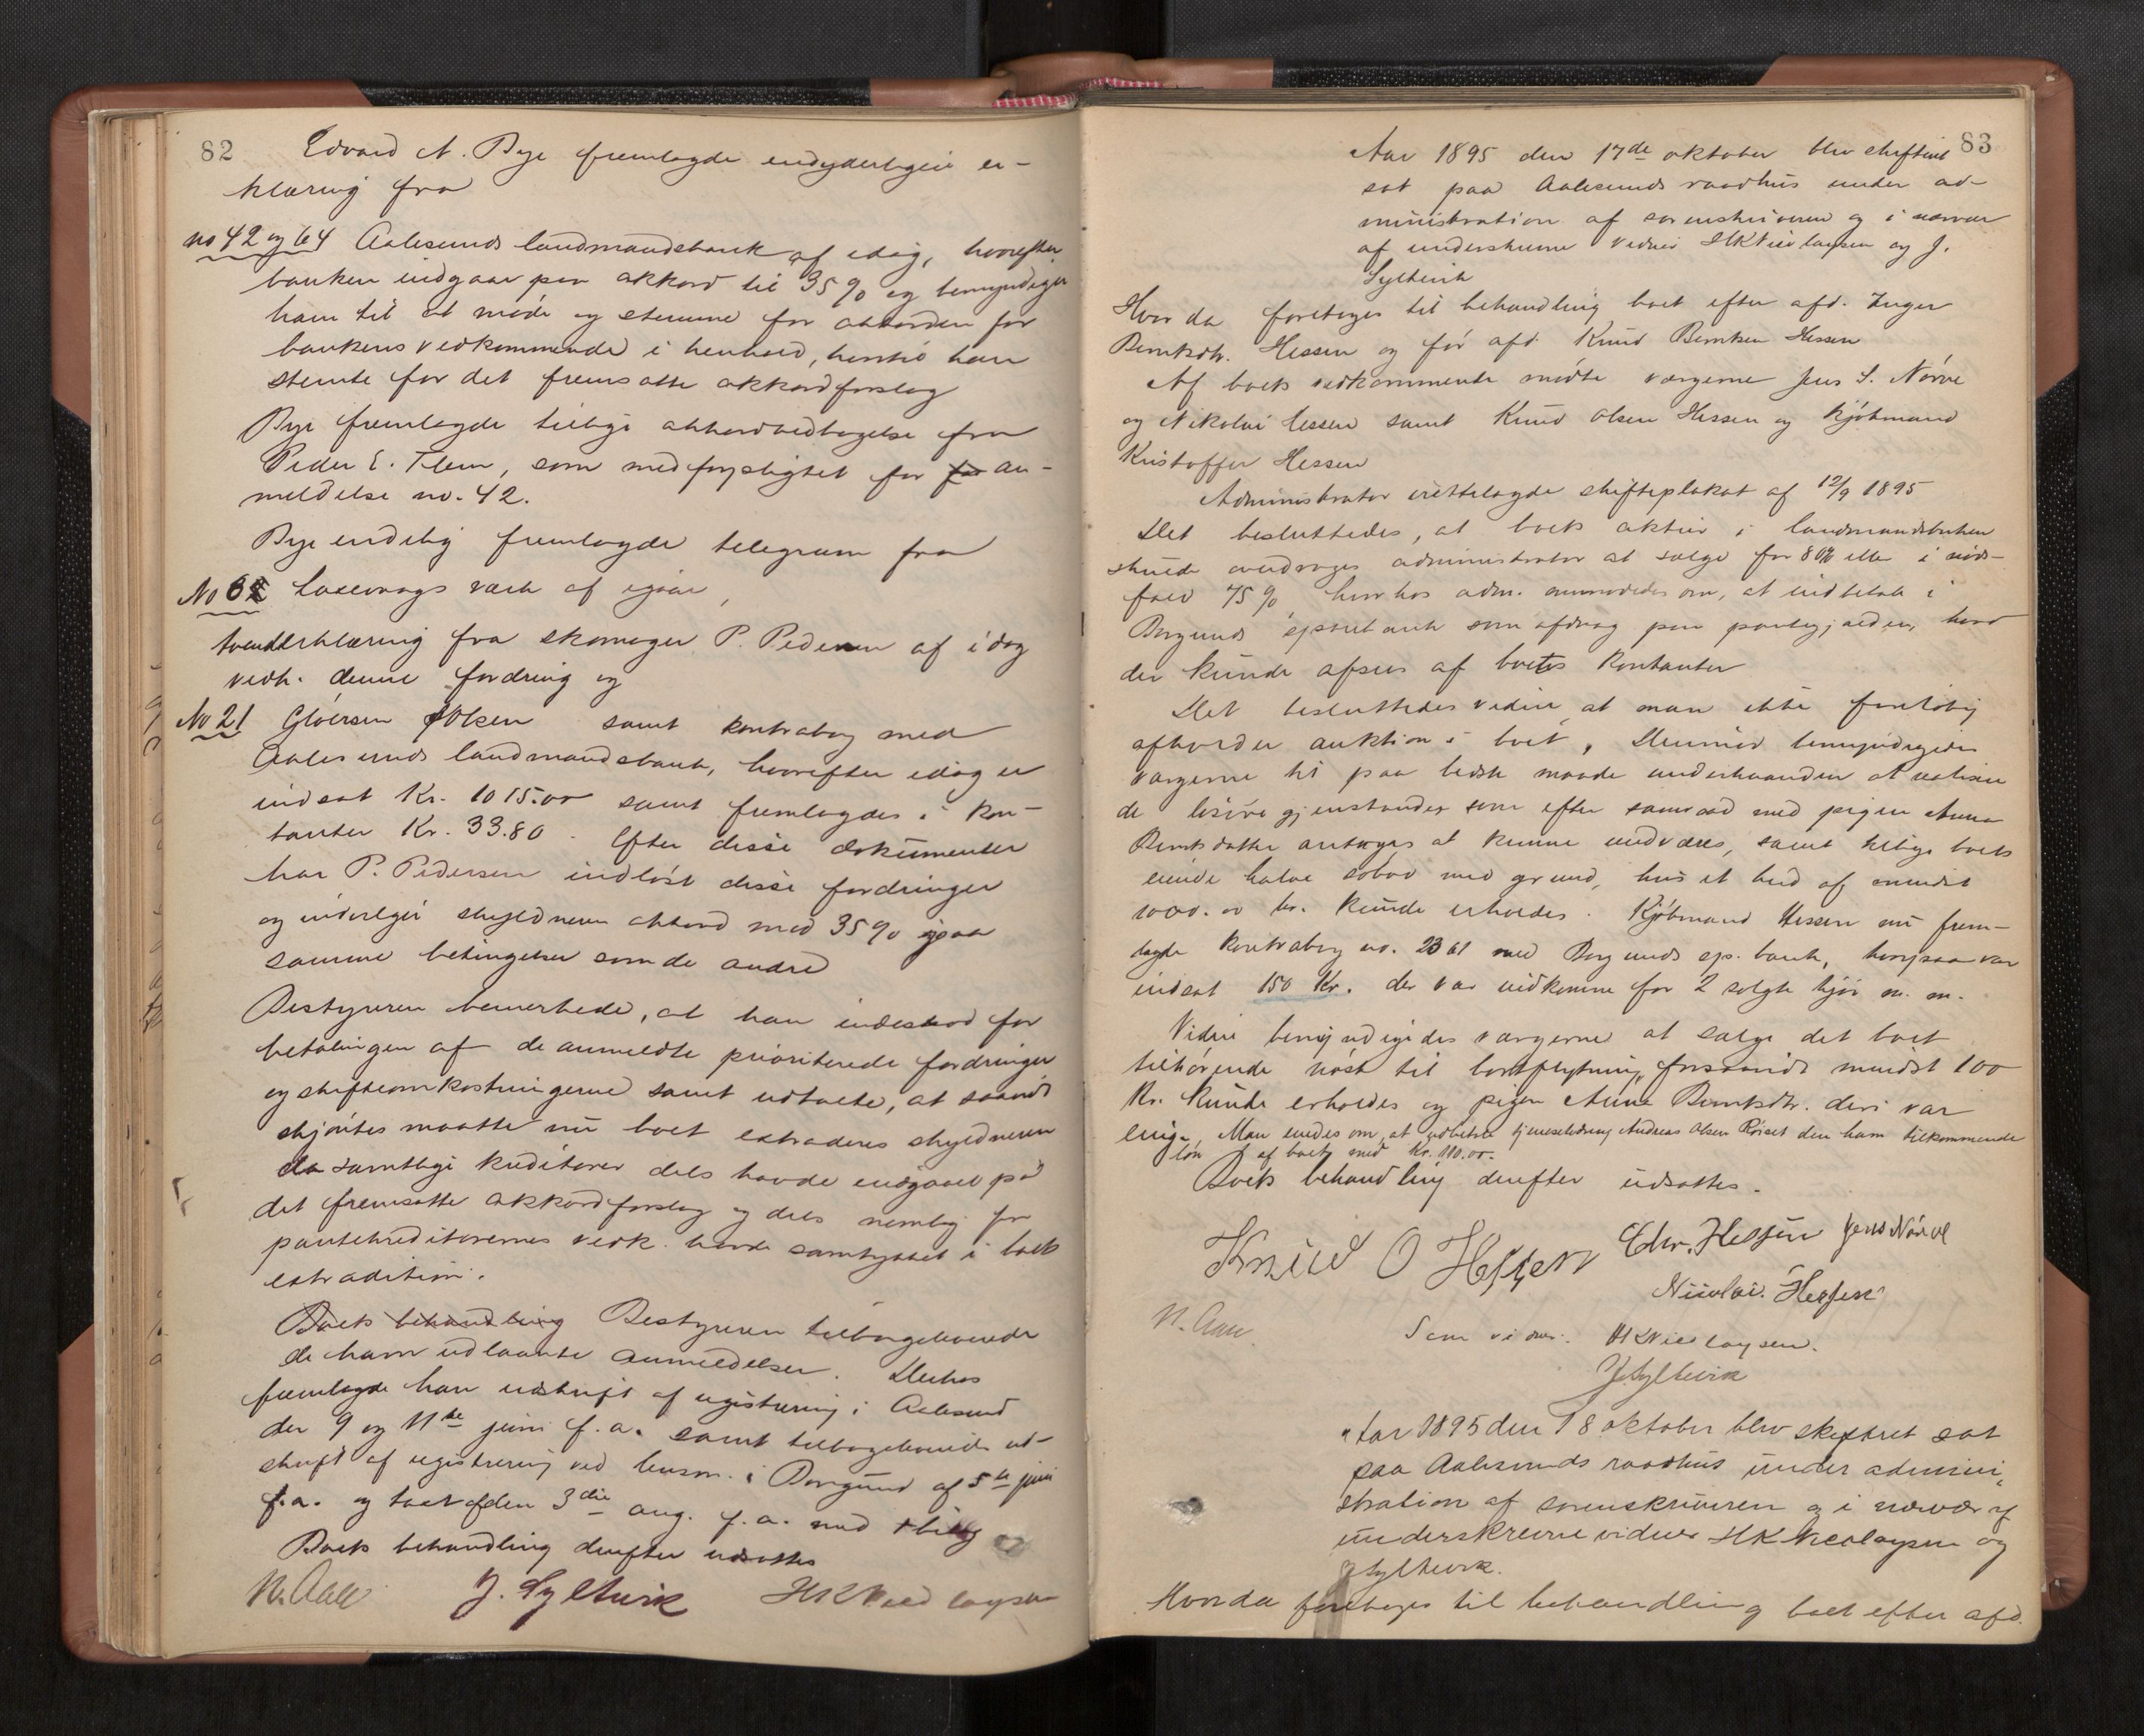 82
Edvard N. Bye fremlagde endyderligere er-
klæring fra
no 42 og 64 Aalesunds landmandsbank af idag, hvorefter
banken indgaar paa akkord til 35 % og bemyndiger
ham til at møde og stemme for akkorden for
bankens vedkommende i henhold, hertil han
stemte for det fremsatte akkordforslag
Bye fremlagde tillige akkordvedtagelse fra
Peder E. Flem, som medforpligtet for for an-
meldelse no. 42.
Bye endelig fremlagde telegram fra
No 62 Laxevaags værk af igaar,
erklæring fra skomager P. Pedersen af idag
vedk. denne fordring og
No 21 Gløersen & Olsen samt kontrabog med
Aalesunds landmandsbank, hvorefter idag er
indsat Kr. 1015.00 samt fremlagdes i kon-
tanter Kr. 33.80. Efter disse dokumenter
har P. Pedersen indløst disse fordringer
og indvilger skyldneren akkord mod 35 % paa
samme betingelser som de andre
Bestyreren bemerkede, at han indestod for
betalingen af de anmeldte prioriterede fordringer
og skifteomkostningerne samt udtalte, at saavidt
skjøntes maatte nu boet extraderes skyldneren
da samtlige kreditorer dels havde indgaaet på
det fremsatte akkordforslag og dels nemlig for
pantekreditorernes vedk. havde samtykket i boets
extradition.
Boets behandling Bestyreren tilbageleverede
de ham udlaante anmeldelser. Derhos
fremlagde han udskrift af registrering i Aalesund
den 9 og 11te juni f.a. samt tilbageleverede ud-
skrift af registrering ved lensm. i Borgund af 5te juni
f.a. og taxt af den 3die aug. f.a. med bilag
Boets behandling derefter udsattes
N. Aall J. Syltevik HKNicolaysen
83
Aar 1895 den 17de oktober blev skifteret
sat paa Aalesunds raadhus under ad-
ministration af sorenskriveren og i nærvær
af underskrevne vidner HKNicolaysen og J.
Syltevik
Hvor da foretoges til behandling boet efter afd. Inger
Berntsdtr. Hessen og før afd. Knud Berntsen Hessen
Af boets vedkommende mødte værgerne Jens S. Nørve
og Nikolai Hessen samt Knud Olsen Hessen og kjøbmand
Kristoffer Hessen
Administrator irettelagde skifteplakat af 12/9 1895
Det besluttedes, at boets aktier i landmandsbanken
skulde overdrages administrator at sælge for 80 % eller i nøds-
fald 75 %, hvorhos adm. anmodedes om, at indbetale i
Borgunds sparebank som afdrag paa pantegjælden, hvad
der kunde afsees af boets kontanter
Det besluttedes videre at man ikke foreløbig
afholder auktion i boet, Derimod bemyndigedes
værgerne til paa bedste maade underhaanden at realisere
de løsøregjenstander som efter samraad med pigen Anne
Berntsdatter antoges at kunne undværes, samt tillige boets
eiende halve søbod med grund, hvis et bud af mindst
1000.00 kr. kunde erholdes. Kjøbmand Hessen nu frem-
lagde kontrabog no. 2361 med Borgunds sp. bank, hvorpaa var
indsat 150 Kr. der var indkomne for 2 solgte kjør m. m.
Videre bemyndigedes værgerne at sælge det boet
tilhørende nøst til bortflytning, forsaavidt mindst 100
Kr. kunde erholdes og pigen Anne Berntsdtr. deri var
enig. Man enedes om, at udbetale tjenestedreng Andreas Olsen Røiset den ham tilkommende
løn af boet med Kr. 110.00.
Boets behandling derefter udsattes.
Knud O Hessen Chr. Hessen Jens Nørve
Nicolai. Hessen
N. Aall Som vidner: HKNicolaysen.
J Syltevik
Aar 1895 den 18 oktober blev skifteret sat
paa Aalesunds raadhus under admini-
stration af sorenskriveren og i nærvær af
underskrevne vidner HK Nicolaysen og
J Syltevik.
Hvor da foretoges til behandling boet efter afd.